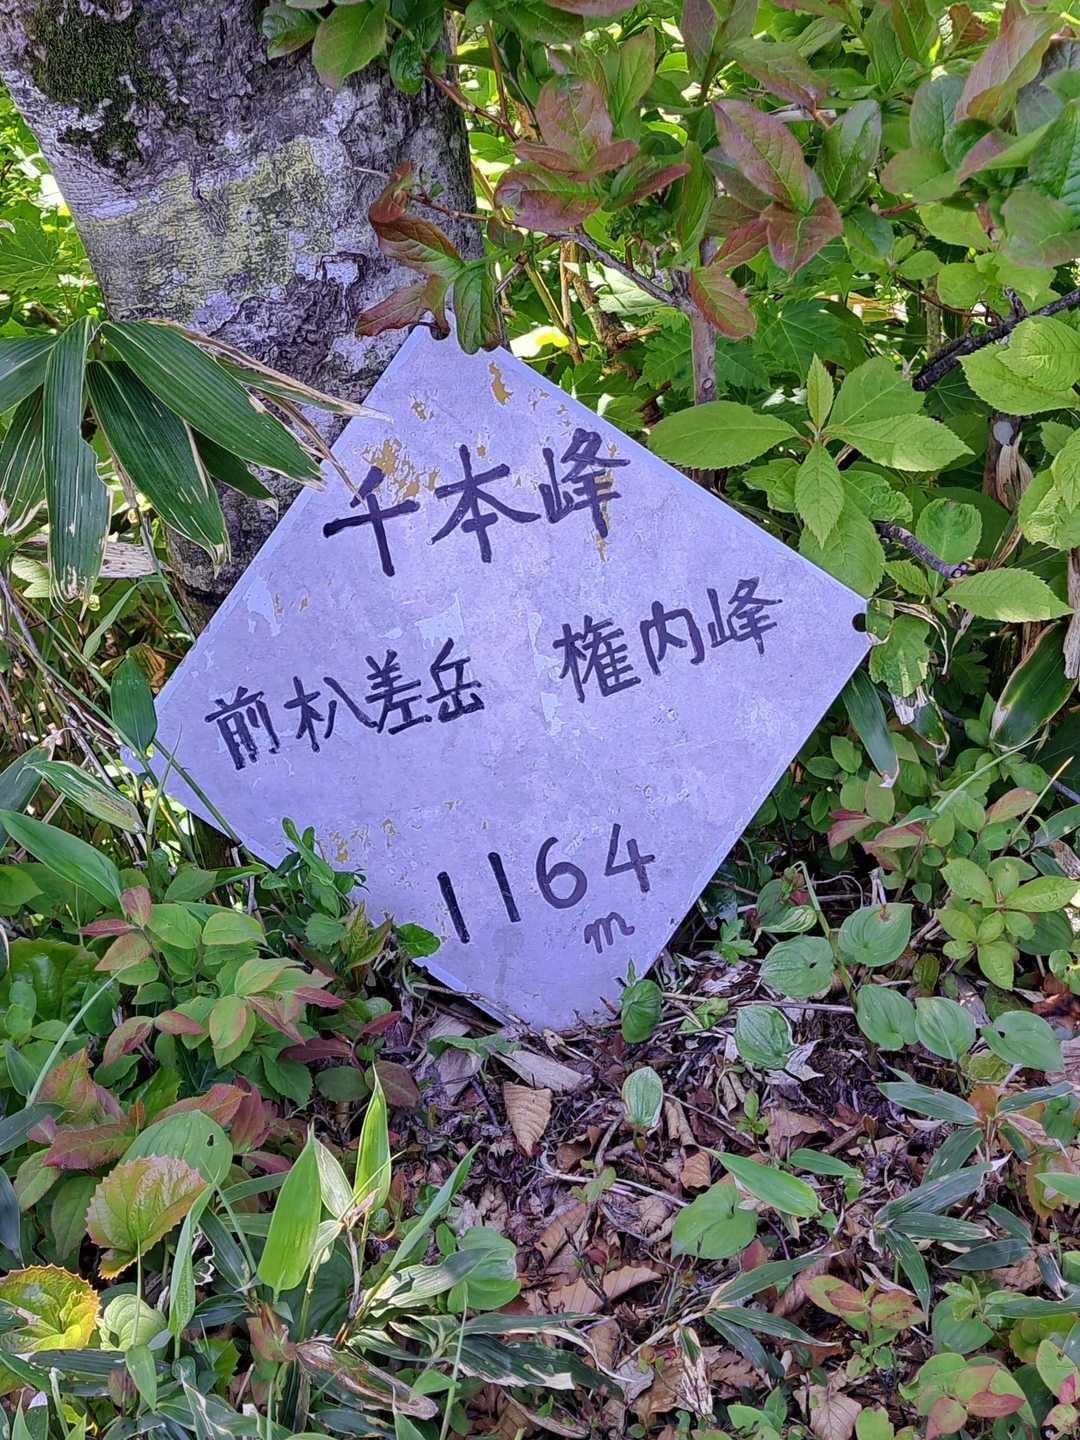 千本峰
前杁差岳 権内峰
1164
m